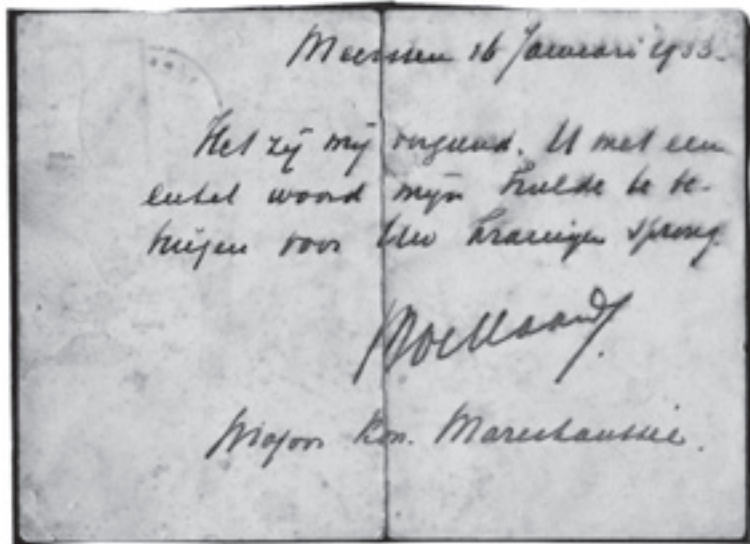 16 Januari 1933.
Het zij mij vergund. U met een
enkel woord mijn hulde te be-
tuigen voor Uw kranigen sprong
Majoor Kon. Marechaussée.